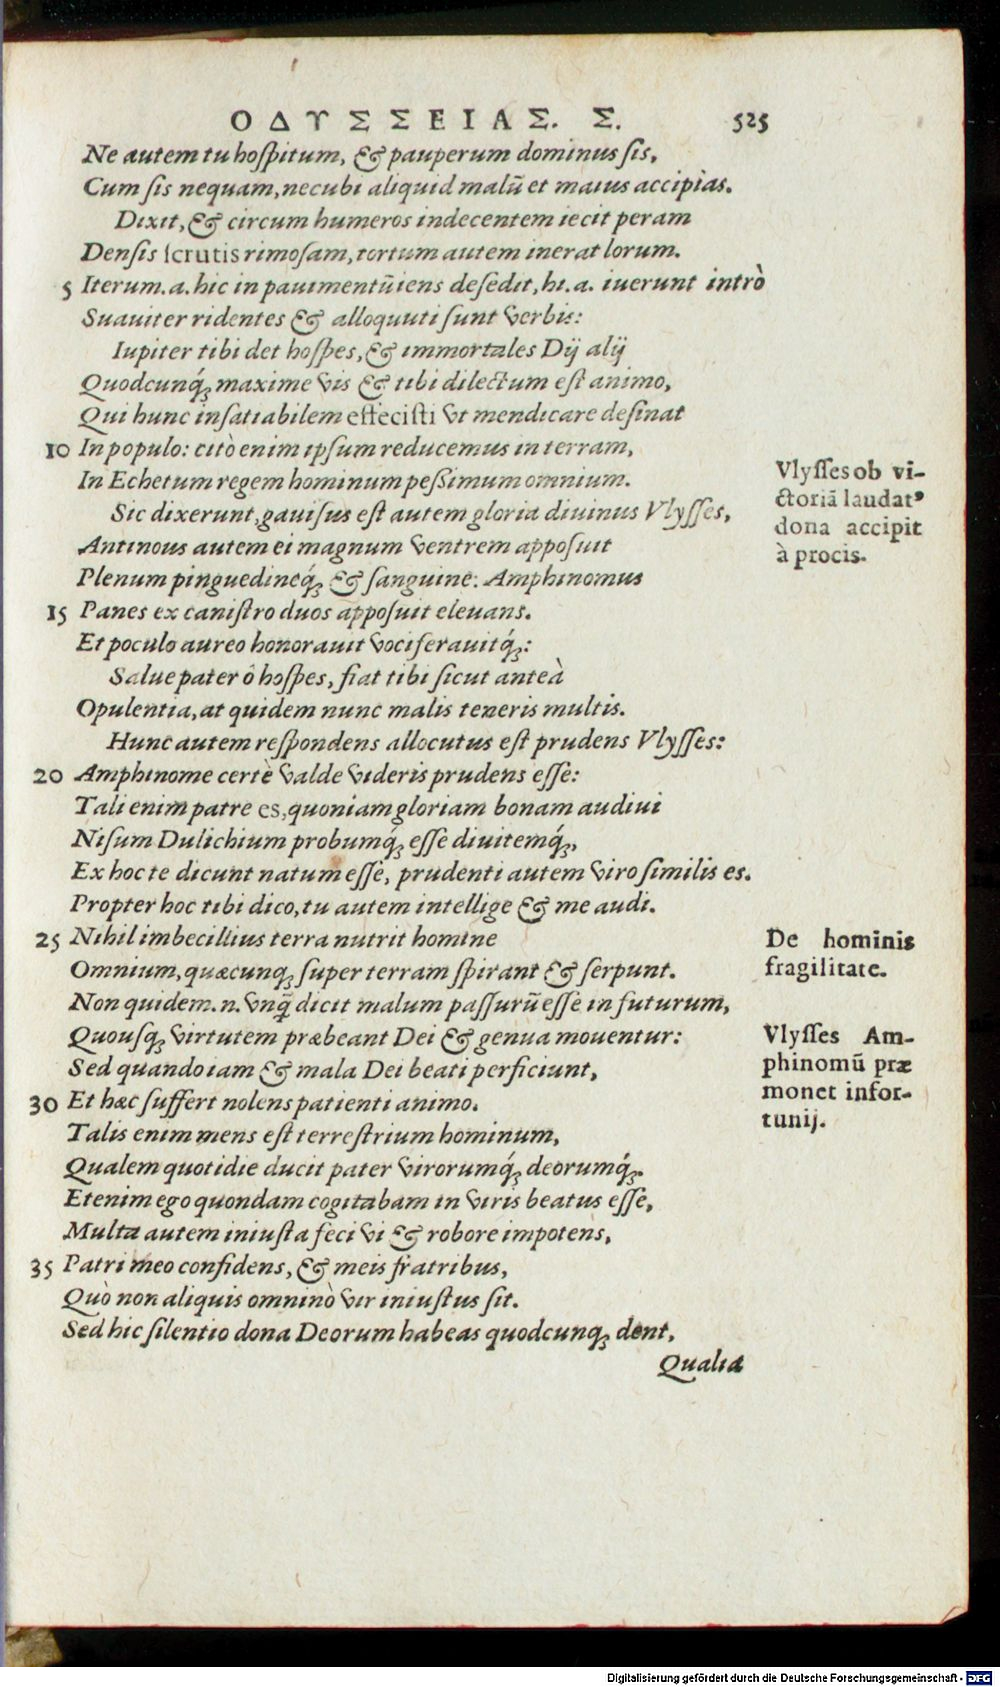 ΟΔΥΣΣΕΙΑΣ. Σ. 525
Ne autem tu hospitum, & pauperum dominus sis,
Cum sis nequam, necubi aliquid malū et maius accipias.
Dixit, & circum humeros indecentem iecit peram
Densis scrutis rimosam, tortum autem inerat lorum.
5 Iterum .a. hic in pauimentū iens desedit, hi .a. iuerunt intrò
Suauiter ridentes & alloquuti sunt verbis:
Iupiter tibi det hospes, & immortales Dij alij
Quodcunq́; maxime vis & tibi dilectum est animo,
Qui hunc insatiabilem effecisti vt mendicare desinat
10 In populo: citò enim ipsum reducemus in terram,
In Echetum regem hominum pessimum omnium.
Sic dixerunt, gauisus est autem gloria diuinus Vlysses,
Antinous autem ei magnum ventrem apposuit
Plenum pinguedineq́; & sanguine: Amphinomus
15 Panes ex canistro duos apposuit eleuans.
Et poculo aureo honorauit vociferauitq́;:
Salue pater ô hospes, fiat tibi sicut anteà
Opulentia, at quidem nunc malis teneris multis.
Hunc autem respondens allocutus est prudens Vlysses:
20 Amphinome certè valde videris prudens esse:
Tali enim patre es, quoniam gloriam bonam audiui
Nisum Dulichium probumq́; esse diuitemq́;,
Ex hoc te dicunt natum esse, prudenti autem viro similis es.
Propter hoc tibi dico, tu autem intellige & me audi.
25 Nihil imbecillius terra nutrit homine
Omnium, quæcunq; super terram spirant & serpunt.
Non quidem .n. vnq̃ dicit malum passurū esse in futurum,
Quousq; virtutem præbeant Dei & genua mouentur:
Sed quando iam & mala Dei beati perficiunt,
30 Et hæc suffert nolens patienti animo.
Talis enim mens est terrestrium hominum,
Qualem quotidie ducit pater virorumq́; deorumq́;.
Etenim ego quondam cogitabam in viris beatus esse,
Multa autem iniusta feci vi & robore impotens,
35 Patri meo confidens, & meis fratribus,
Quò non aliquis omninò vir iniustus sit.
Sed hic silentio dona Deorum habeas quodcunq; dent,
Qualia
Vlysses ob vi-
ctoriā laudatꝰ
dona accipit
à procis.
De hominis
fragilitate.
Vlysses Am-
phinomū præ
monet infor-
tunij.
Digitalisierung gefördert durch die Deutsche Forschungsgemeinschaft - DFG